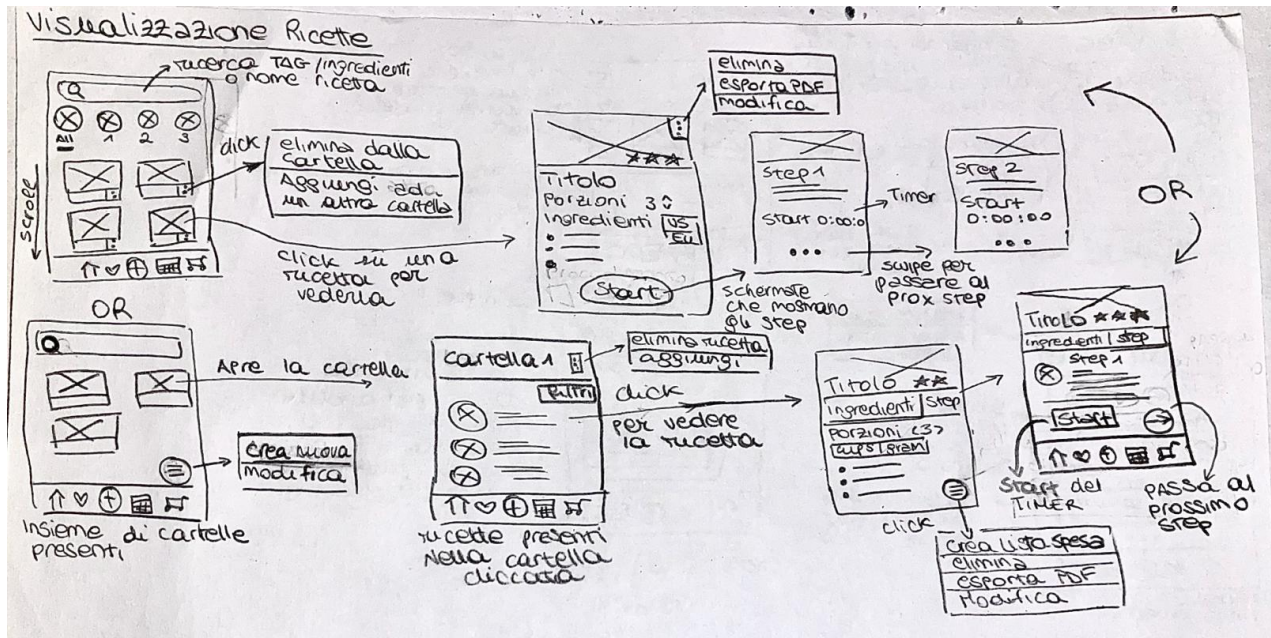 Visualizzazione Ricette
ricerca TAG/ingredienti
o nome ricetta
All 1 2 3
scroll
click
elimina dalla
Cartella
Aggiungi ad
un altra cartella
click su una
ricetta per
vederla
elimina
esporta PDF
modifica
Titolo
Porzioni 3
ingredienti US
EU
Start
schermate
che mostrano
gli step
Step 1
start 0:00:0
Timer
swipe per
passare al
prox step
Step 2
start
0:00:00
OR
OR
Apre la cartella
crea nuova
modifica
Insieme di cartelle
presenti
Cartella 1
elimina ricetta
aggiungi
Filtri
click
per vedere
la ricetta
ricette presenti
nella cartella
cliccata
Titolo
ingredienti step
porzioni <3>
cups|gram
click
crea lista spesa
elimina
esporta PDF
Modifica
Titolo
ingredienti | step
step 1
Start
Start del
TIMER
PASSA al
prossimo
step